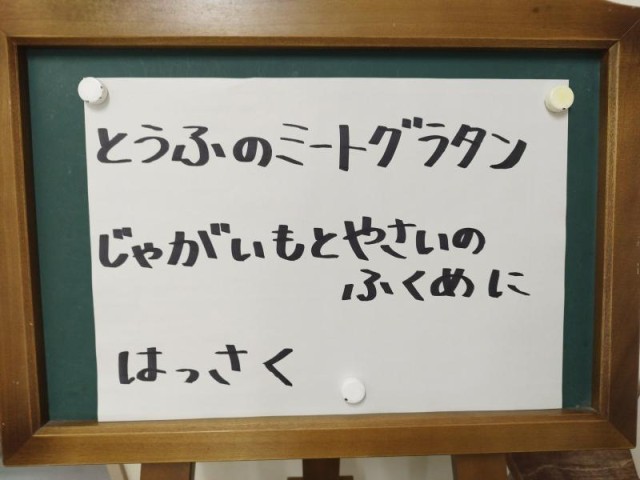 とうふのミートグラタン
じゃがいもとやさいの
ふくめに
はっさく